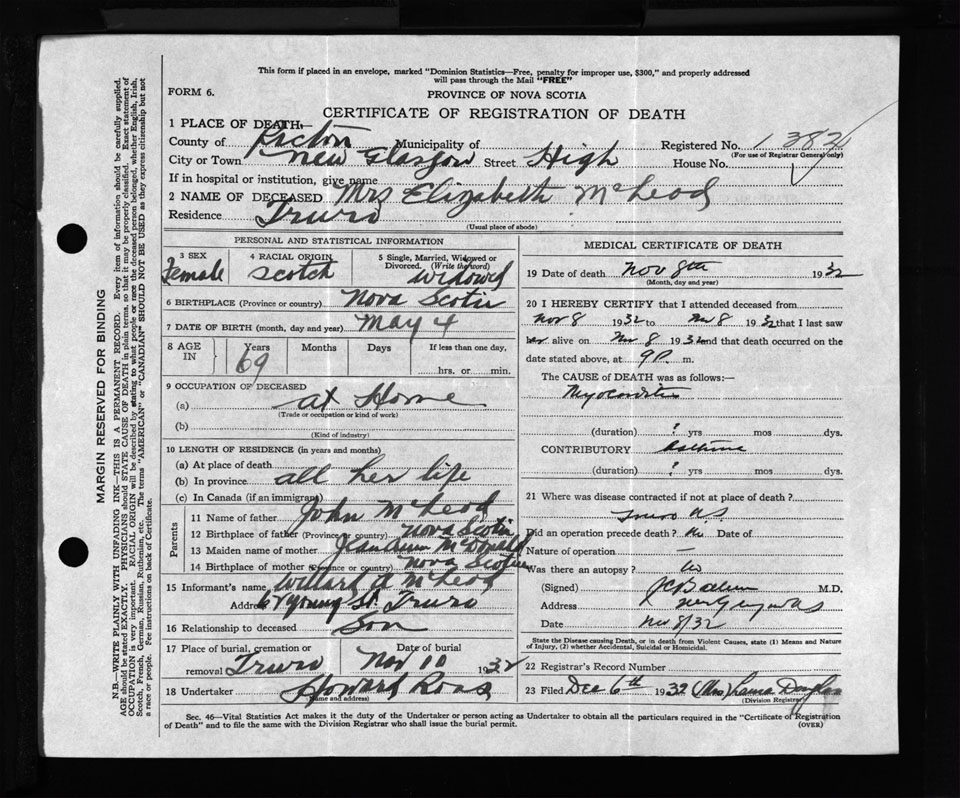 This form if placed in an envelope, marked "Dominion Statistics—Free, penalty for improper use, $300," and properly addressed
will pass through the Mail "FREE"
FORM 6.
PROVINCE OF NOVA SCOTIA
CERTIFICATE OF REGISTRATION OF DEATH
1 PLACE OF DEATH:
County of Pictou Municipality of Registered No.
(For use of Registrar General only)
City or Town New Glasgow Street High House No.
If in hospital or institution, give name
2 NAME OF DECEASED Mrs Elizabeth McLeod
Residence Truro
(Usual place of abode)
PERSONAL AND STATISTICAL INFORMATION
3 SEX Female
4 RACIAL ORIGIN Scotch
5 Single, Married, Widowed or Divorced. (Write the word) Widowed
6 BIRTHPLACE (Province or country) Nova Scotia
7 DATE OF BIRTH (month, day and year) May 4
8 AGE IN Years 69 Months Days If less than one day, hrs. or min.
9 OCCUPATION OF DECEASED
(a) At Home
(Trade or occupation or kind of work)
(b)
(Kind of industry)
10 LENGTH OF RESIDENCE (in years and months)
(a) At place of death
(b) In province all her life
(c) In Canada (if an immigrant)
Parents
11 Name of father John McLeod
12 Birthplace of father (Province or country) Nova Scotia
13 Maiden name of mother McDonald
14 Birthplace of mother (Province or country) Nova Scotia
15 Informant's name Willard A McLeod
Address 67 Young St. Truro
16 Relationship to deceased Son
17 Place of burial, cremation or removal Truro Date of burial Nov 10 1932
18 Undertaker Howard Ross
(Name and address)
MEDICAL CERTIFICATE OF DEATH
19 Date of death Nov 8th 1932
(Month, day and year)
20 I HEREBY CERTIFY that I attended deceased from
Nov 8 1932 to Nov 8 1932 that I last saw
her alive on Nov 8 1932 and that death occurred on the
date stated above, at 9 P. m.
The CAUSE of DEATH was as follows:—
Myocarditis
(duration) ? yrs mos dys.
CONTRIBUTORY Asthma
(duration) ? yrs mos dys.
21 Where was disease contracted if not at place of death?
Truro N.S.
Did an operation precede death? No Date of
Nature of operation —
Was there an autopsy? No
(Signed) M.D.
Address New Glasgow N.S.
Date Nov 8/32
State the Disease causing Death, or in death from Violent Causes, state (1) Means and Nature
of Injury, (2) whether Accidental, Suicidal or Homicidal.
22 Registrar's Record Number
23 Filed Dec 6th 1932 (Mrs) Laura Douglas
(Division Registrar)
Sec. 46—Vital Statistics Act makes it the duty of the Undertaker or person acting as Undertaker to obtain all the particulars required in the "Certificate of Registration
of Death" and to file the same with the Division Registrar who shall issue the burial permit.
(OVER)
MARGIN RESERVED FOR BINDING
N.B.—WRITE PLAINLY WITH UNFADING INK—THIS IS A PERMANENT RECORD. Every item of information should be carefully supplied.
AGE should be stated EXACTLY. PHYSICIANS should STATE CAUSE OF DEATH in plain terms, so that it may be properly classified. Exact statement of
OCCUPATION is very important. RACIAL ORIGIN will be described by stating to what people or race the deceased person belonged, whether English, Irish,
Scotch, French, German, Russian, Ruthenian, etc. The terms "AMERICAN" or "CANADIAN" SHOULD NOT BE USED as they express citizenship but not
a race or people. See instructions on back of Certificate.